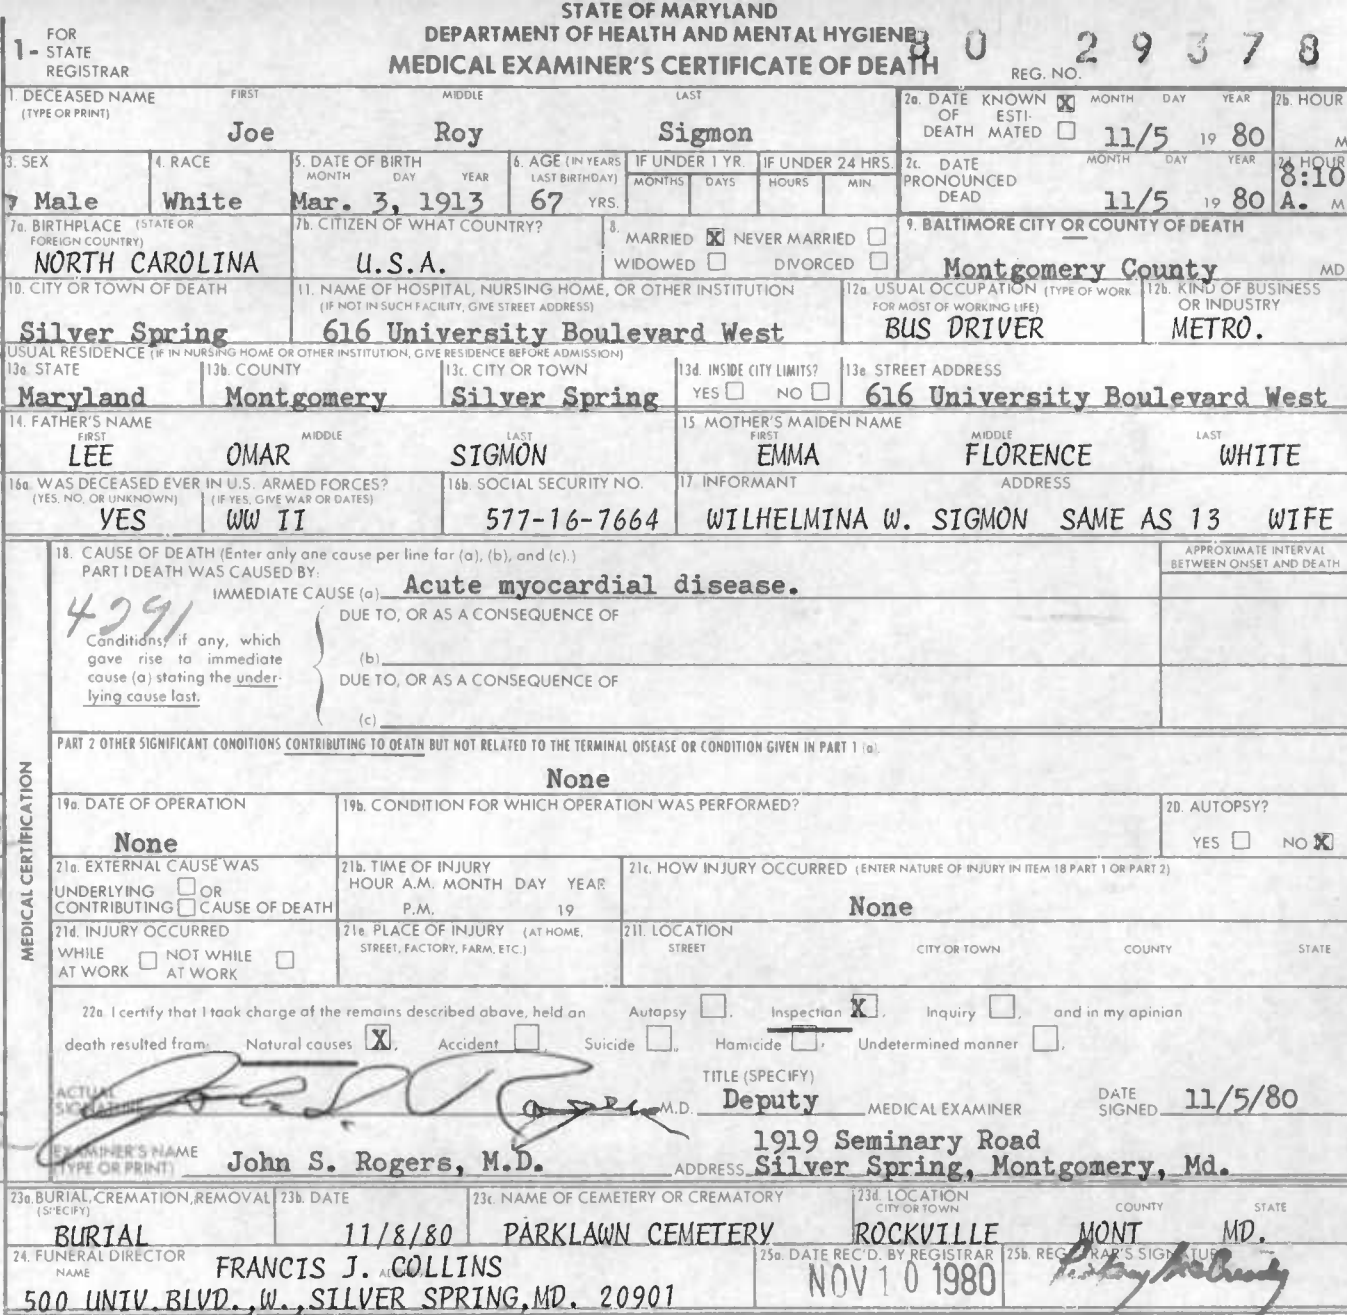 STATE OF MARYLAND
DEPARTMENT OF HEALTH AND MENTAL HYGIENE
MEDICAL EXAMINER'S CERTIFICATE OF DEATH
1- FOR STATE REGISTRAR
REG. NO. 80 29378
1. DECEASED NAME (TYPE OR PRINT) FIRST MIDDLE LAST
Joe Roy Sigmon
2a. DATE OF DEATH KNOWN X ESTIMATED MONTH DAY YEAR
11/5 19 80
2b. HOUR M
3. SEX
Male
4. RACE
White
5. DATE OF BIRTH MONTH DAY YEAR
Mar. 3, 1913
6. AGE (IN YEARS LAST BIRTHDAY)
67 YRS.
IF UNDER 1 YR. MONTHS DAYS
IF UNDER 24 HRS. HOURS MIN
2c. DATE PRONOUNCED DEAD MONTH DAY YEAR
11/5 19 80
2d HOUR
8:10 A. M
7a. BIRTHPLACE (STATE OR FOREIGN COUNTRY)
NORTH CAROLINA
7b. CITIZEN OF WHAT COUNTRY?
U.S.A.
8. MARRIED X NEVER MARRIED
WIDOWED DIVORCED
9. BALTIMORE CITY OR COUNTY OF DEATH
Montgomery County MD
10. CITY OR TOWN OF DEATH
Silver Spring
11. NAME OF HOSPITAL, NURSING HOME, OR OTHER INSTITUTION
(IF NOT IN SUCH FACILITY, GIVE STREET ADDRESS)
616 University Boulevard West
12a. USUAL OCCUPATION (TYPE OF WORK FOR MOST OF WORKING LIFE)
BUS DRIVER
12b. KIND OF BUSINESS OR INDUSTRY
METRO.
USUAL RESIDENCE (IF IN NURSING HOME OR OTHER INSTITUTION, GIVE RESIDENCE BEFORE ADMISSION)
13a STATE
Maryland
13b. COUNTY
Montgomery
13c. CITY OR TOWN
Silver Spring
13d. INSIDE CITY LIMITS?
YES NO
13e STREET ADDRESS
616 University Boulevard West
14. FATHER'S NAME FIRST MIDDLE LAST
LEE OMAR SIGMON
15 MOTHER'S MAIDEN NAME FIRST MIDDLE LAST
EMMA FLORENCE WHITE
16a. WAS DECEASED EVER IN U.S. ARMED FORCES?
(YES, NO, OR UNKNOWN) (IF YES, GIVE WAR OR DATES)
YES WW II
16b. SOCIAL SECURITY NO.
577-16-7664
17 INFORMANT ADDRESS
WILHELMINA W. SIGMON SAME AS 13 WIFE
MEDICAL CERTIFICATION
18. CAUSE OF DEATH (Enter only one cause per line for (a), (b), and (c).)
PART I DEATH WAS CAUSED BY:
IMMEDIATE CAUSE (a) Acute myocardial disease.
APPROXIMATE INTERVAL
BETWEEN ONSET AND DEATH
4291
DUE TO, OR AS A CONSEQUENCE OF
Conditions, if any, which
gave rise to immediate
cause (a) stating the under-
lying cause last.
(b)
DUE TO, OR AS A CONSEQUENCE OF
(c)
PART 2 OTHER SIGNIFICANT CONDITIONS CONTRIBUTING TO DEATH BUT NOT RELATED TO THE TERMINAL DISEASE OR CONDITION GIVEN IN PART 1 (a).
None
19a. DATE OF OPERATION
None
19b. CONDITION FOR WHICH OPERATION WAS PERFORMED?
20. AUTOPSY?
YES NO X
21a. EXTERNAL CAUSE WAS
UNDERLYING OR
CONTRIBUTING CAUSE OF DEATH
21b. TIME OF INJURY
HOUR A.M. MONTH DAY YEAR
P.M. 19
21c. HOW INJURY OCCURRED (ENTER NATURE OF INJURY IN ITEM 18 PART 1 OR PART 2)
None
21d. INJURY OCCURRED
WHILE AT WORK NOT WHILE AT WORK
21e. PLACE OF INJURY (AT HOME, STREET, FACTORY, FARM, ETC.)
21f. LOCATION
STREET CITY OR TOWN COUNTY STATE
22a. I certify that I took charge of the remains described above, held an Autopsy , Inspection X , Inquiry , and in my opinion
death resulted from: Natural causes X , Accident , Suicide , Homicide , Undetermined manner .
ACTUAL SIGNATURE John S. Rogers M.D.
TITLE (SPECIFY)
Deputy MEDICAL EXAMINER
DATE SIGNED 11/5/80
EXAMINER'S NAME (TYPE OR PRINT) John S. Rogers, M.D.
ADDRESS 1919 Seminary Road
Silver Spring, Montgomery, Md.
23a. BURIAL, CREMATION, REMOVAL (SPECIFY)
BURIAL
23b. DATE
11/8/80
23c. NAME OF CEMETERY OR CREMATORY
PARKLAWN CEMETERY
23d. LOCATION CITY OR TOWN COUNTY STATE
ROCKVILLE MONT MD.
24. FUNERAL DIRECTOR
NAME FRANCIS J. COLLINS
500 UNIV. BLVD., W., SILVER SPRING, MD. 20901
25a. DATE REC'D. BY REGISTRAR
NOV 10 1980
25b. REGISTRAR'S SIGNATURE